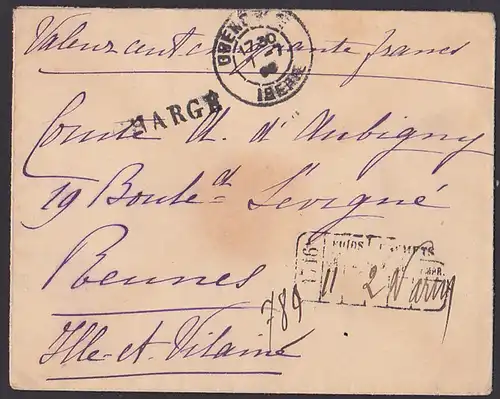 Valeur cent cinquante francs
17.30
CHARGÉ
Comte A. d'Aubigny
19 Boulev.d Sévigné
Rennes
Ille-et-Vilaine
POIDS
CACHETS
11 2
789